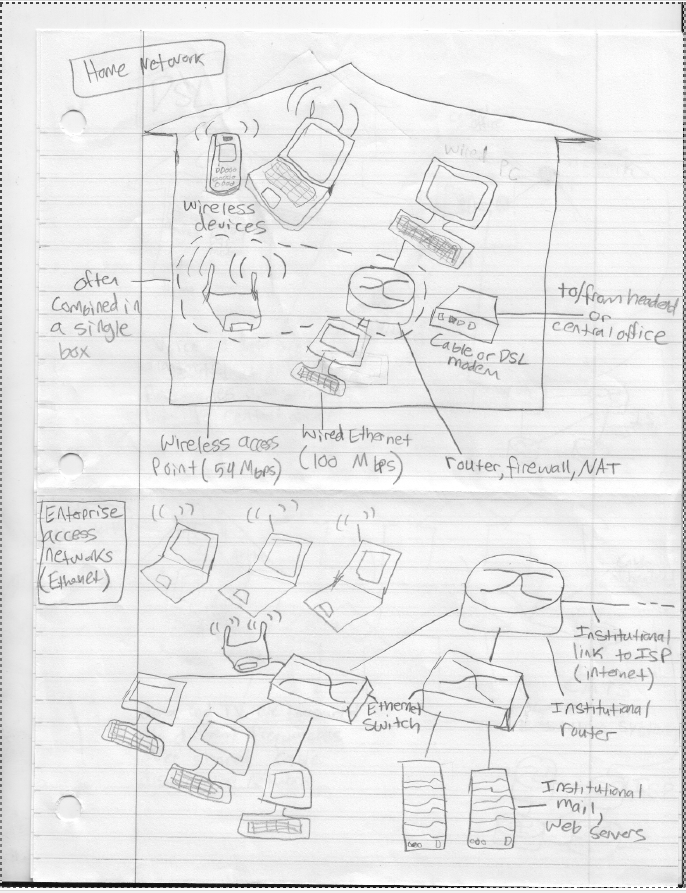 Home Network
Wired
PC
wireless
devices
often
combined in
a single
box
to/from headend
or
central office
Cable or DSL
modem
Wireless access
Point (54 Mbps)
Wired Ethernet
(100 Mbps)
router, firewall, NAT
Enterprise
access
networks
(Ethernet)
Institutional
link to ISP
(internet)
Ethernet
Switch
Institutional
router
Institutional
mail,
web servers